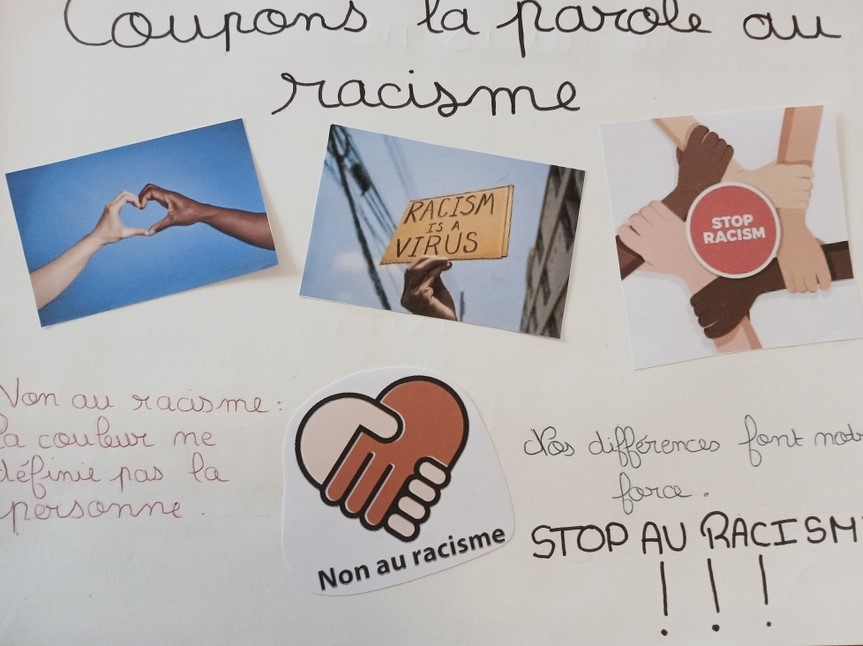 Coupons la parole au
racisme
RACISM
IS A
VIRUS
STOP
RACISM
Non au racisme :
la couleur ne
définie pas la
personne.
Non au racisme
Nos différences font notr
force.
STOP AU RACISM
! ! !